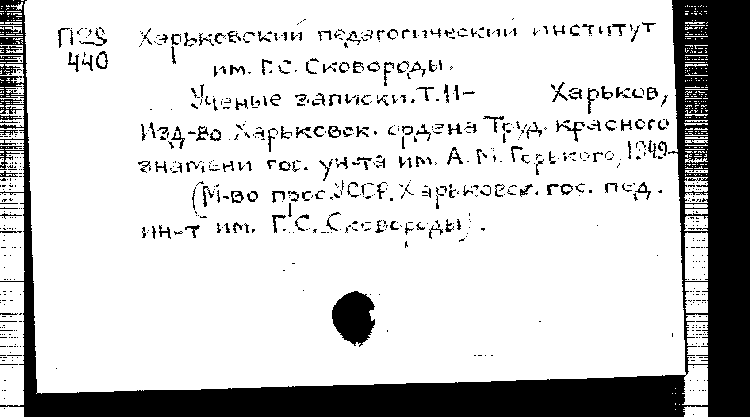 П28 Харьковский педагогический институт
440 им. Г.С. Сковороды.
Ученые записки. Т. 11- Харьков,
Изд-во Харьковск. ордена Труд. красного
знамени гос. ун-та им. А. М. Горького, 1949-
(М-во прос. УССР. Харьковск. гос. пед.
ин-т им. Г. С. Сковороды).